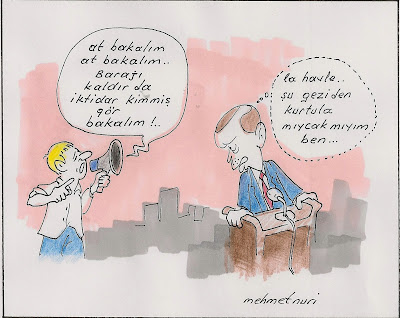 at bakalım
at bakalım..
Barağı
kaldır da
iktidar kimmiş
gör
bakalım !..
la havle..
şu geziden
kurtula
mıycak mıyım
ben...
mehmetnuri